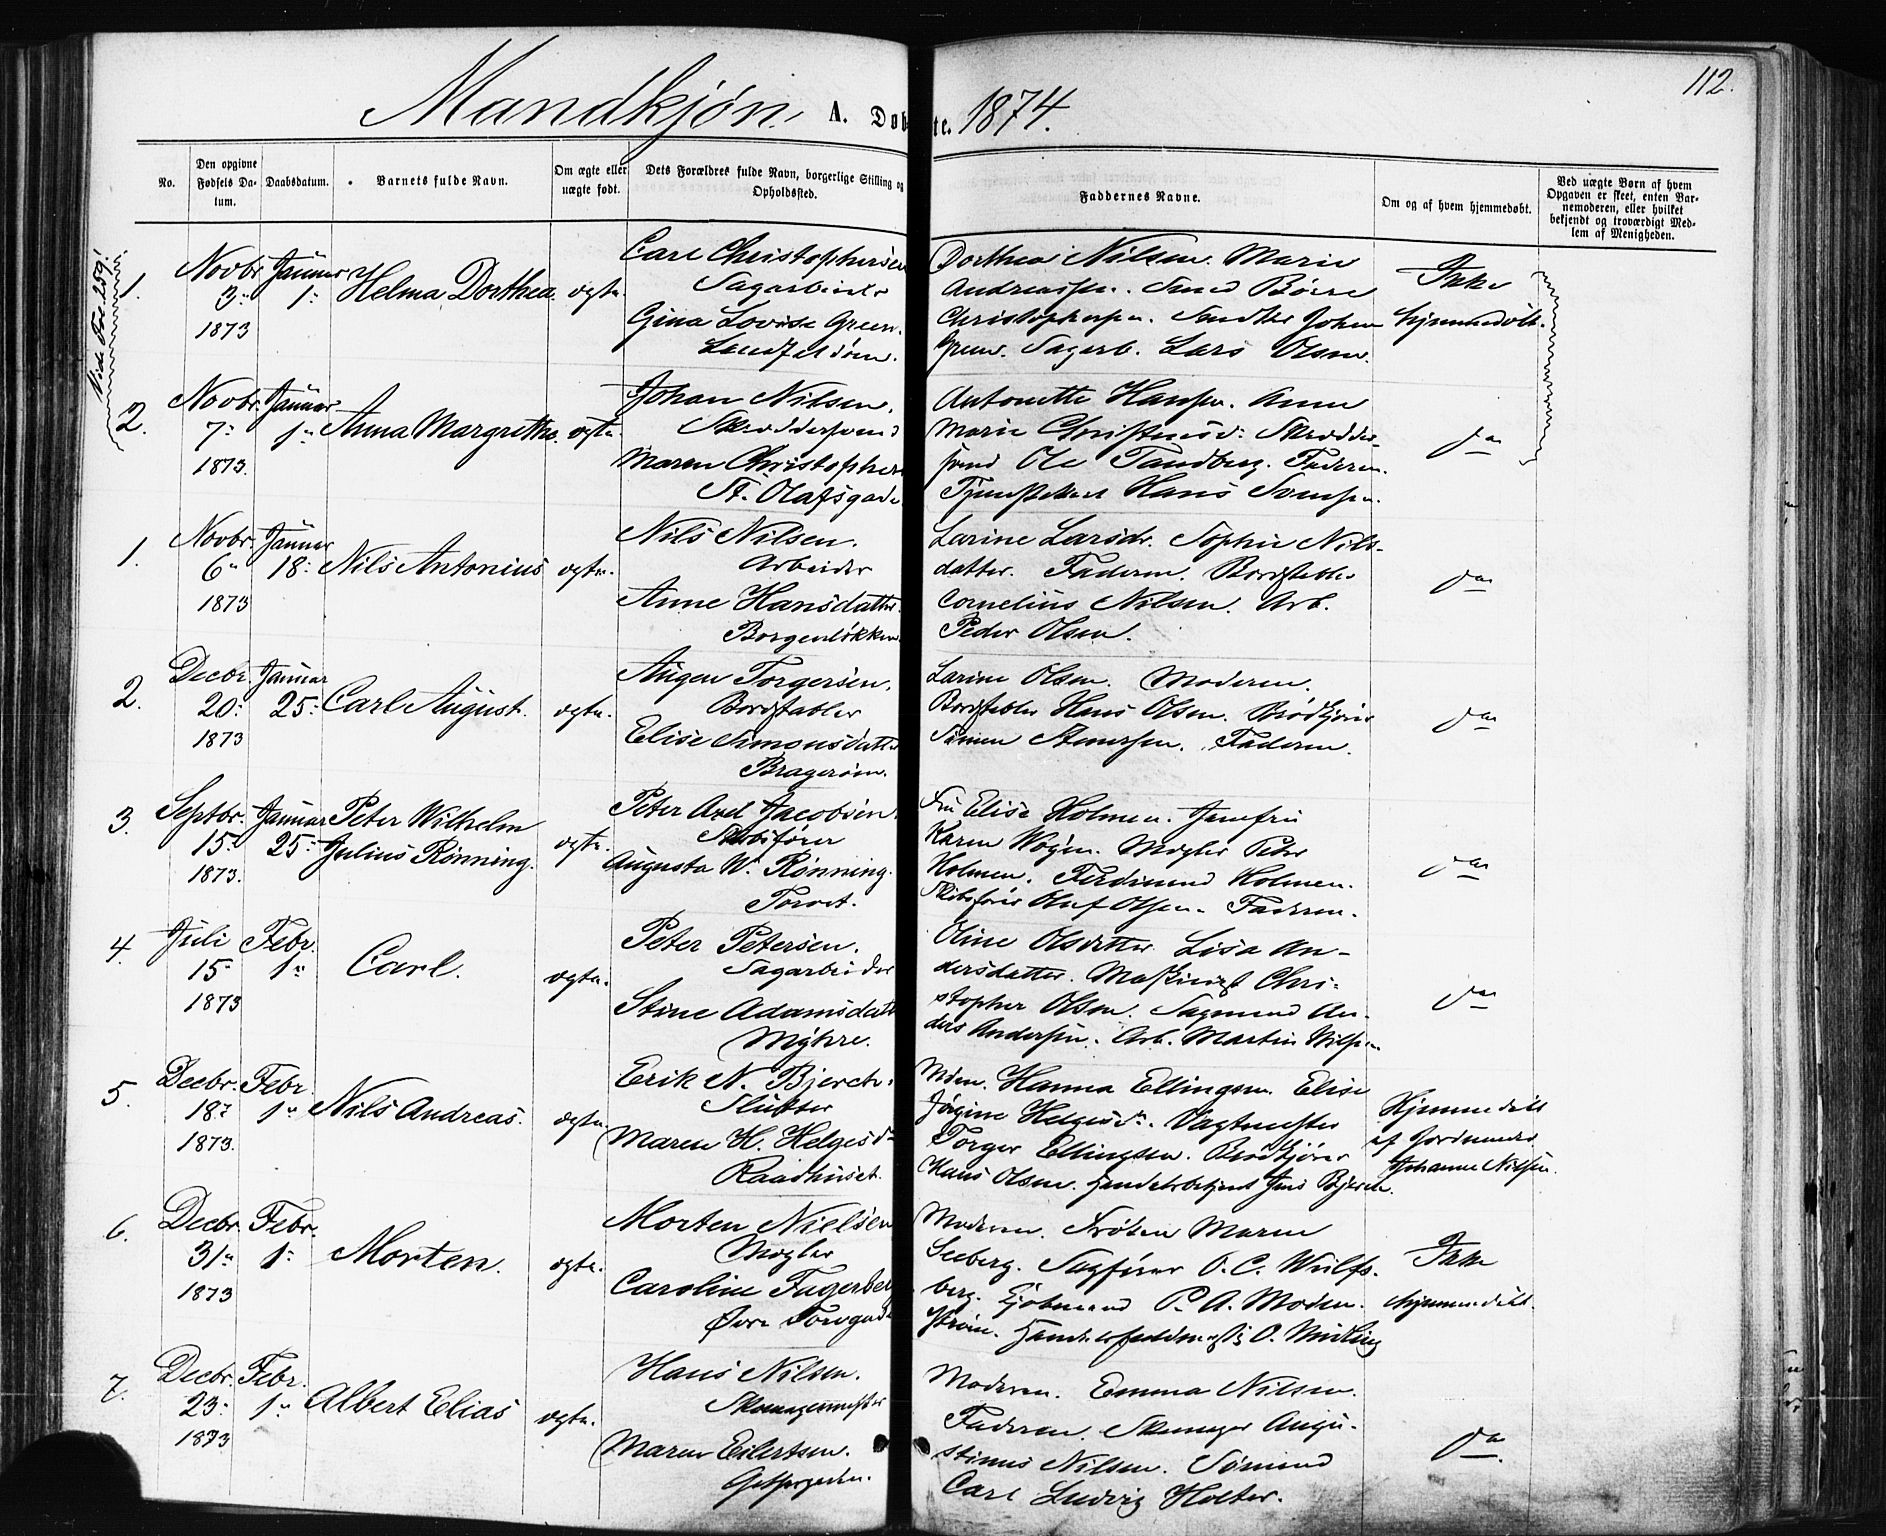 112.
Mandkjøn. A. Døbte. 1874.
No.
Den opgivne Fødsels Datum.
Daabsdatum.
Barnets fulde Navn.
Om ægte eller uægte født.
Dets Forældres fulde Navn, borgerlige Stilling og Opholdssted.
Faddernes Navne.
Om og af hvem hjemmedøbt.
Ved uægte Børn af hvem Opgaven er skeet, enten Barnemoderen, eller hvilket bekjendt og troværdigt Medlem af Menigheden.
Vide Fol. 259!
1.
Novbr. 3. 1873
Januar 1.
Helma Dorthea
ægte.
Carl Christophersen
Sagarbeider
Gina Lovise Green.
Landfaldøen.
Dorthea Nilsen. Marie
Andreassen. Smed Børre
Christophersen. Johan
Green. Sagarb. Lars Olsen.
Ikke
hjemmedøbt.
2.
Novbr. 7. 1873.
Januar 1.
Anna Margrethe.
ægte.
Johan Nilsen.
Skræddersvend
Maren Christophers
St. Olafsgade
Antonette Hansen. Anne
Marie Christensd. Skrædder-
svend Ole Tandberg. Faderen.
Hans Svensen.
do
1.
Novbr. 6. 1873
Januar 18.
Nils Antonius
ægte.
Nils Nilsen.
Arbeider
Anne Hansdatter.
Borgenløkken
Larine Larsdr. Sophie Nils-
datter. Faderen. Bordstabler
Cornelius Nilsen. Arb.
Peder Olsen.
do
2.
Decbr. 20. 1873
Januar 25.
Carl August.
ægte.
Augen Torgersen.
Bordstabler
Elise Simonsdatter
Bragerøen.
Larine Olsen. Moderen.
Bordstabler Hans Olsen. Brødkjører
Simen Steensen. Faderen.
do
3.
Septbr. 15. 1873.
Januar 25.
Peter Wilhelm
Julius Rønning.
ægte.
Peter Axel Jacobsen.
Skibsfører
Augusta W. Rønning.
Torvet.
Fru Elise Holmen. Jomfru
Karen Wogen. Mægler Peter
Holmen. Ferdinand Holmen.
Skibsfører Oluf Olsen. Faderen.
do
4.
Juli 15 1873
Febr. 1.
Carl.
ægte.
Peter Petersen.
Sagarbeider
Stine Adamsdatt
Myhre.
Oline Olsdatter. Lisa An-
dersdatter. Maskinist Chri-
stopher Olsen. Sagmand An-
ders Andersen. Arb. Martin Nilsen
do
5.
Decbr. 18. 1873.
Febr. 1.
Nils Andreas.
ægte.
Erik N. Bjerch.
Slutter
Maren H. Helgesd.
Raadhuset.
Mdm. Hanna Ellingsen. Elise
Jørgine Helgesdr. Vagtmester
Torger Ellingsen. Brødkjører
Hans Olsen. Handelsbetjent Jens Bjerch.
Hjemmedøbt
af Jordmoder
Johanne Nilsen.
6.
Decbr. 31. 1873
Febr. 1.
Morten.
ægte.
Morten Nielsen
Mægler
Caroline Fagerberg
Øvre Torvgade
Moderen. Frøken Maren
Seeberg. Sagfører O. C. Wulfs-
berg. Kjøbmand P. A. Moden.
Strøm. O. Midling
Ikke
hjemmedøbt.
7.
Decbr. 23. 1873
Febr. 1.
Albert Elias
ægte.
Hans Nilsen.
Skomagermester
Maren Eilertsen.
Moderen. Emma Nilsen.
Faderen. Skomager Augu-
stinus Nilsen. Sømand
Carl Ludvig Holter.
do.